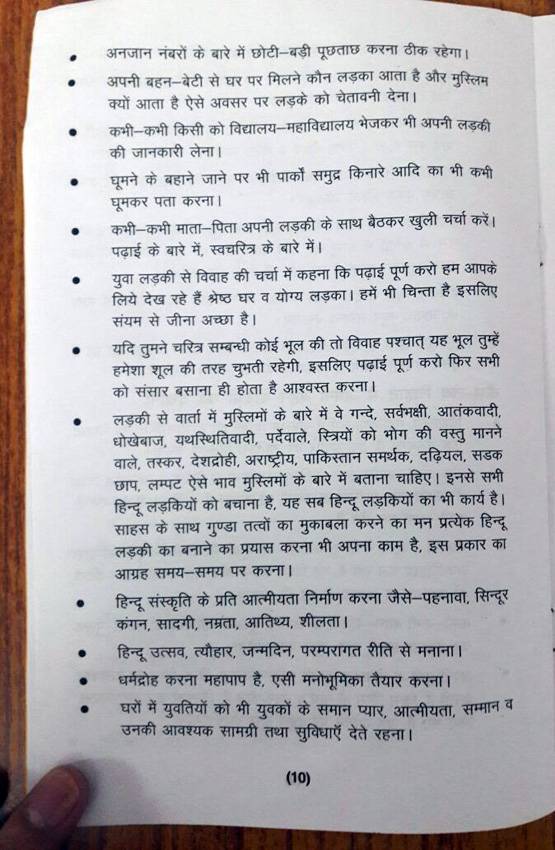 • अनजान नंबरों के बारे में छोटी–बड़ी पूछताछ करना ठीक रहेगा।
• अपनी बहन–बेटी से घर पर मिलने कौन लड़का आता है और मुस्लिम
क्यों आता है ऐसे अवसर पर लड़के को चेतावनी देना।
• कभी–कभी किसी को विद्यालय–महाविद्यालय भेजकर भी अपनी लड़की
की जानकारी लेना।
• घूमने के बहाने जाने पर भी पार्कों समुद्र किनारे आदि का भी कभी
घूमकर पता करना।
• कभी–कभी माता–पिता अपनी लड़की के साथ बैठकर खुली चर्चा करें।
पढ़ाई के बारे में, स्वचरित्र के बारे में।
• युवा लड़की से विवाह की चर्चा में कहना कि पढ़ाई पूर्ण करो हम आपके
लिये देख रहे हैं श्रेष्ठ घर व योग्य लड़का। हमें भी चिन्ता है इसलिए
संयम से जीना अच्छा है।
• यदि तुमने चरित्र सम्बन्धी कोई भूल की तो विवाह पश्चात् यह भूल तुम्हें
हमेशा शूल की तरह चुभती रहेगी, इसलिए पढ़ाई पूर्ण करो फिर सभी
को संसार बसाना ही होता है आश्वस्त करना।
• लड़की से वार्ता में मुस्लिमों के बारे में वे गन्दे, सर्वभक्षी, आतंकवादी,
धोखेबाज, यथस्थितिवादी, पर्देवाले, स्त्रियों को भोग की वस्तु मानने
वाले, तस्कर, देशद्रोही, अराष्ट्रीय, पाकिस्तान समर्थक, दढ़ियल, सडक
छाप, लम्पट ऐसे भाव मुस्लिमों के बारे में बताना चाहिए। इनसे सभी
हिन्दू लड़कियों को बचाना है, यह सब हिन्दू लड़कियों का भी कार्य है।
साहस के साथ गुण्डा तत्वों का मुकाबला करने का मन प्रत्येक हिन्दू
लड़की का बनाने का प्रयास करना भी अपना काम है, इस प्रकार का
आग्रह समय–समय पर करना।
• हिन्दू संस्कृति के प्रति आत्मीयता निर्माण करना जैसे–पहनावा, सिन्दूर
कंगन, सादगी, नम्रता, आतिथ्य, शीलता।
• हिन्दू उत्सव, त्यौहार, जन्मदिन, परम्परागत रीति से मनाना।
• धर्मद्रोह करना महापाप है, एसी मनोभूमिका तैयार करना।
• घरों में युवतियों को भी युवकों के समान प्यार, आत्मीयता, सम्मान व
उनकी आवश्यक सामग्री तथा सुविधाएँ देते रहना।
(10)